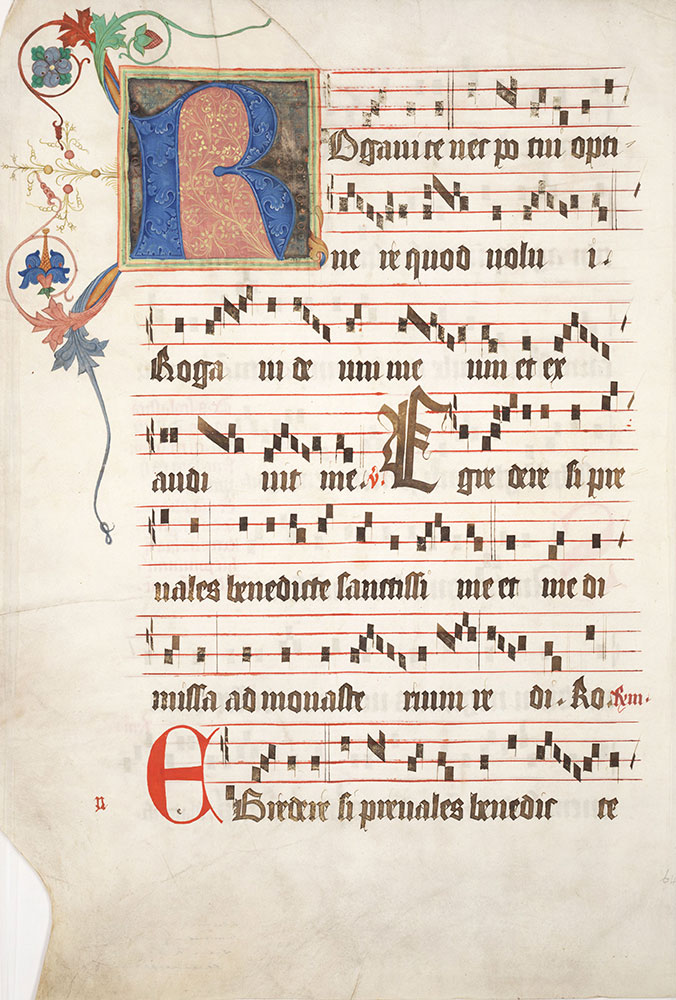 ROgaui te nec po tui opti
ne re quod uolu i.
Roga ui de um me um et ex
audi uit me. ꝟ. E gre dere si pre
uales benedicte sanctissi me et me di
missa ad monaste rium re di. Ro. Rym.
EGredere si preuales benedic te
n